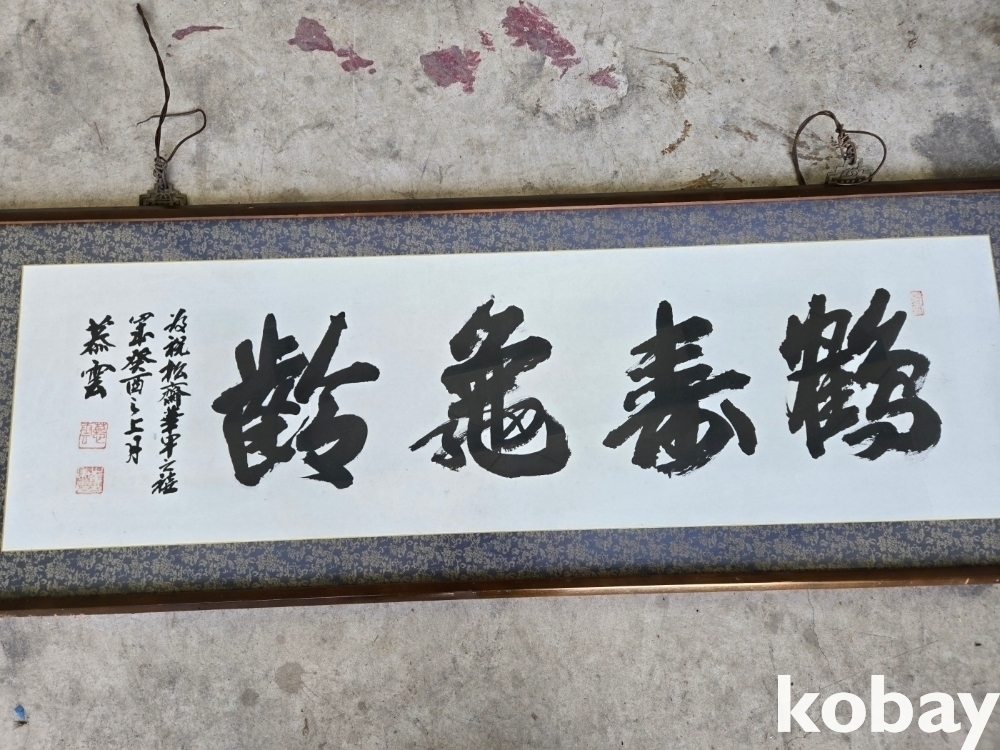 鶴壽龜齡
為祝松齋華甲之禧
癸酉之上月
慕雲
kobay